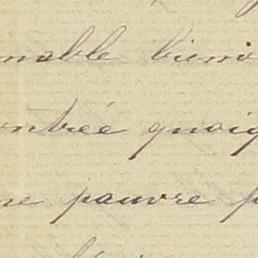 mable bien
ontrée quoiq
ne pauvre p